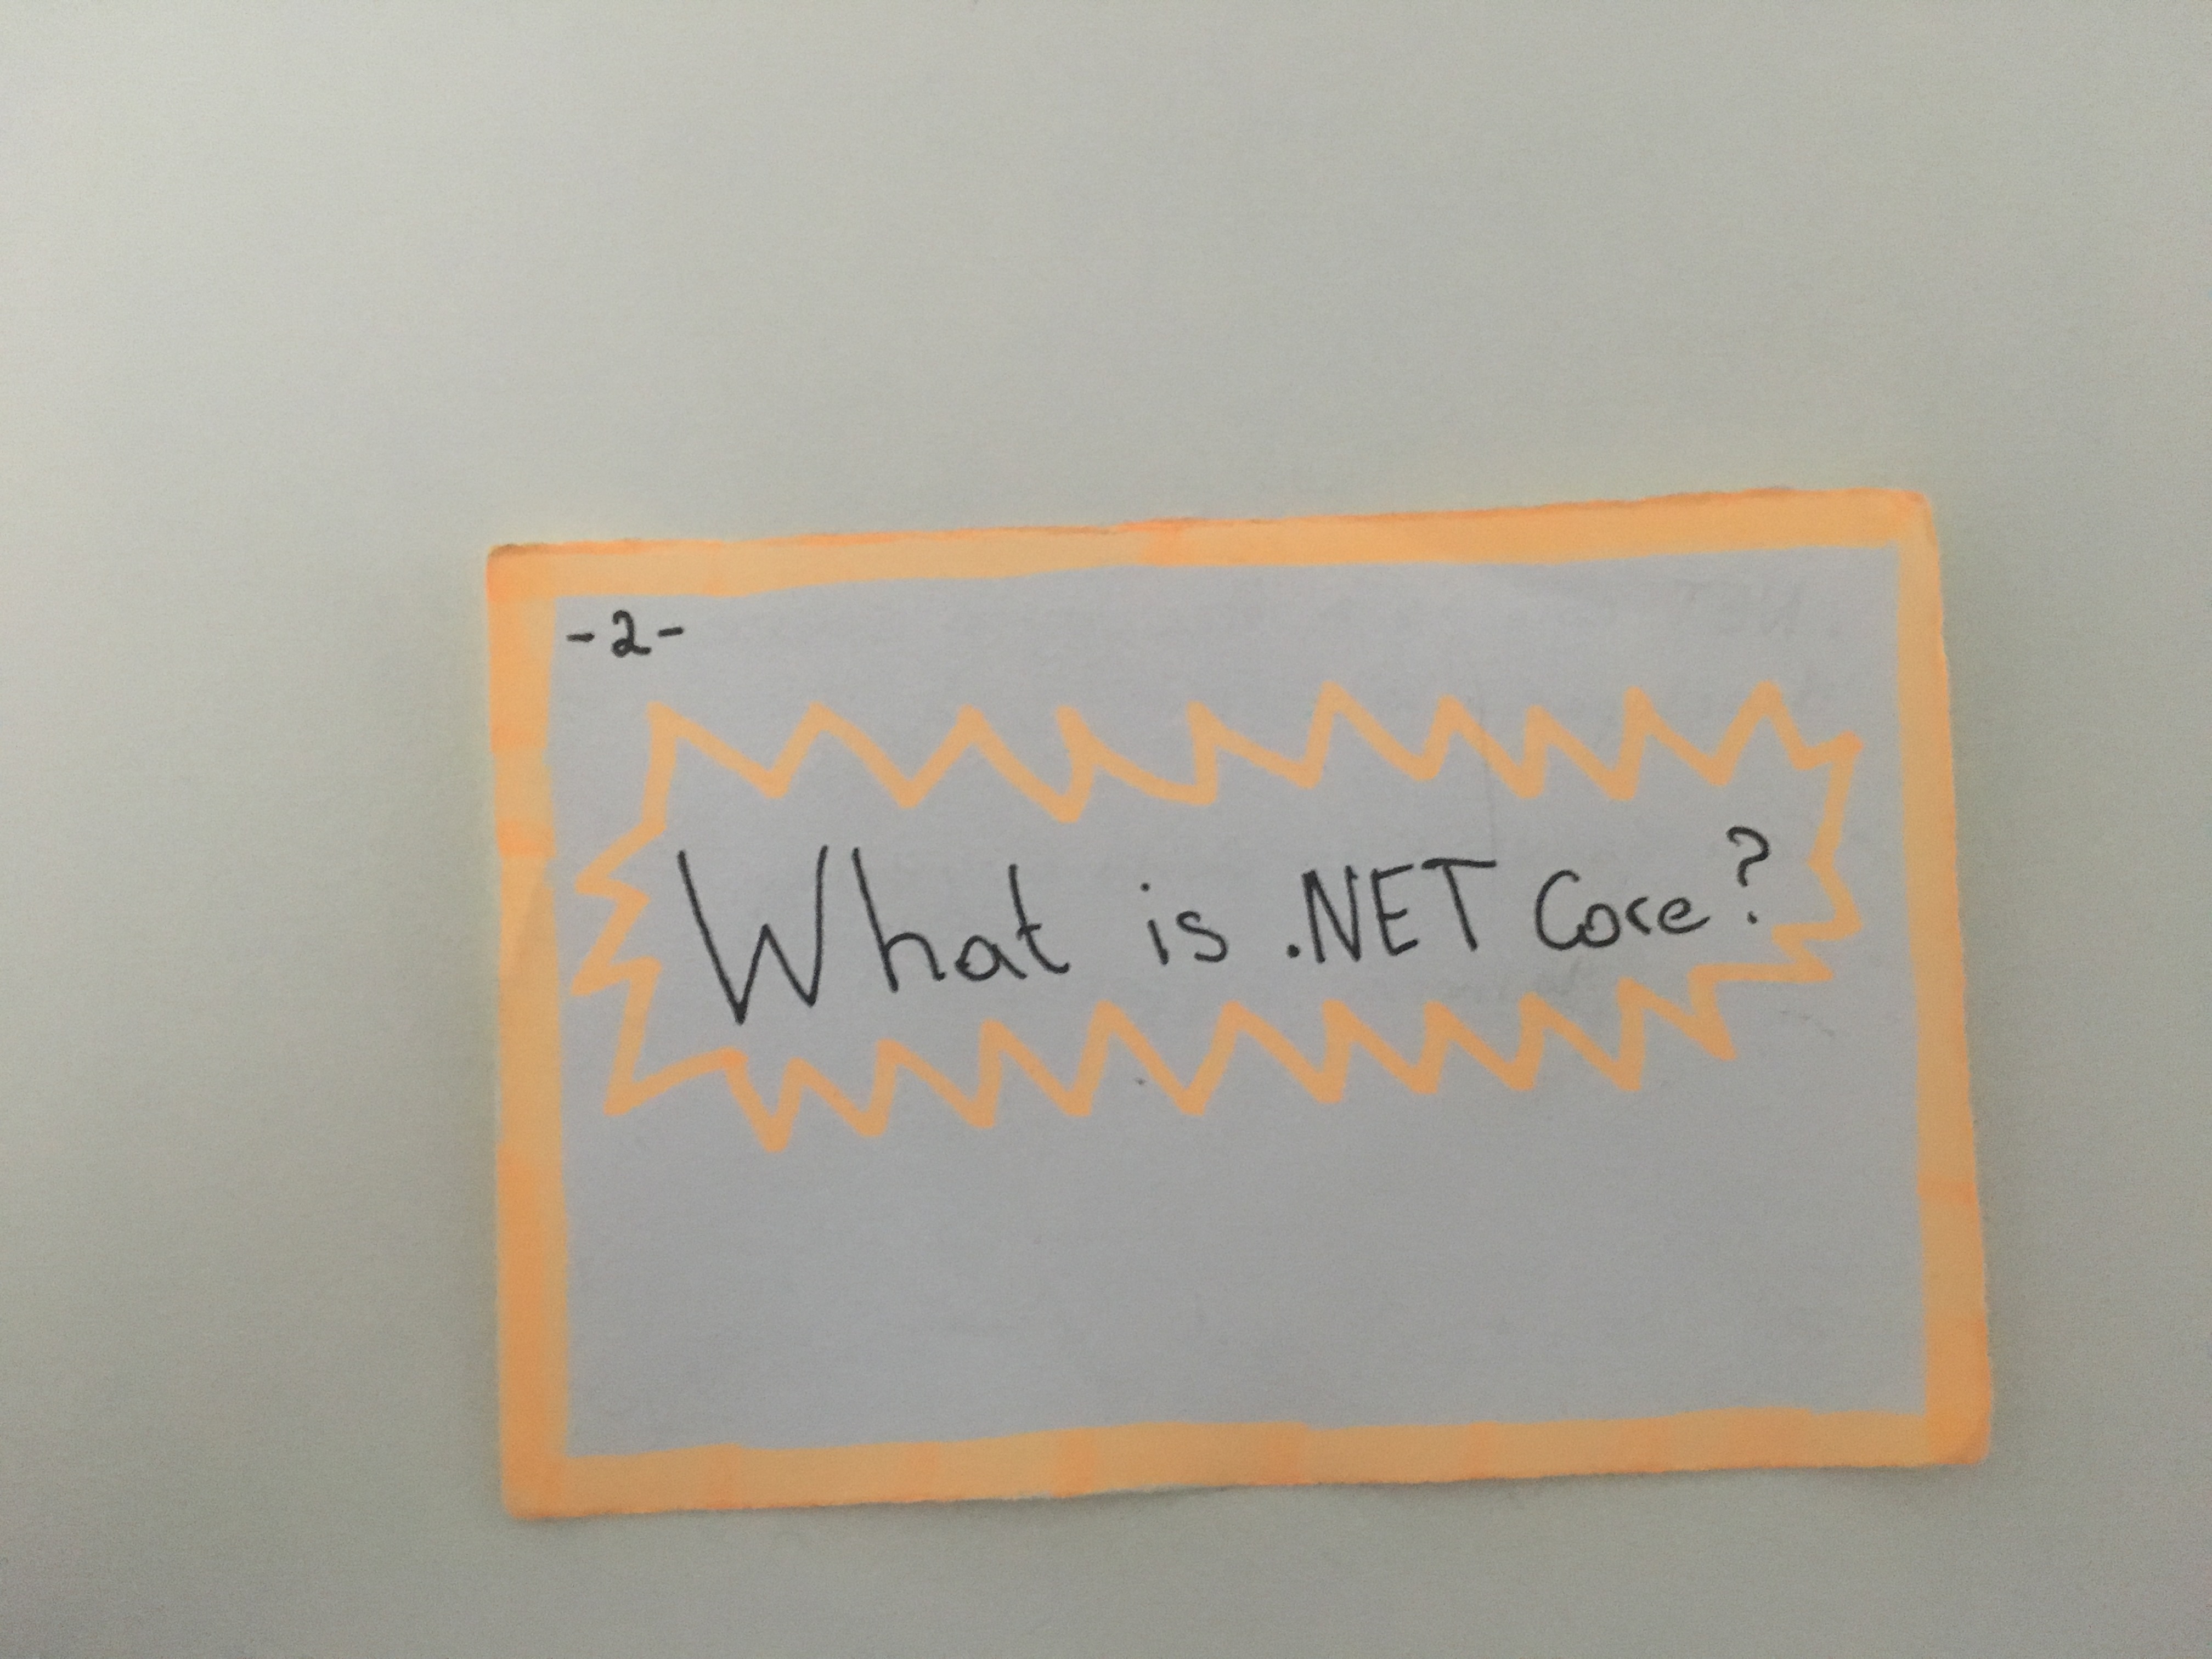 -2-
What is .NET Core?